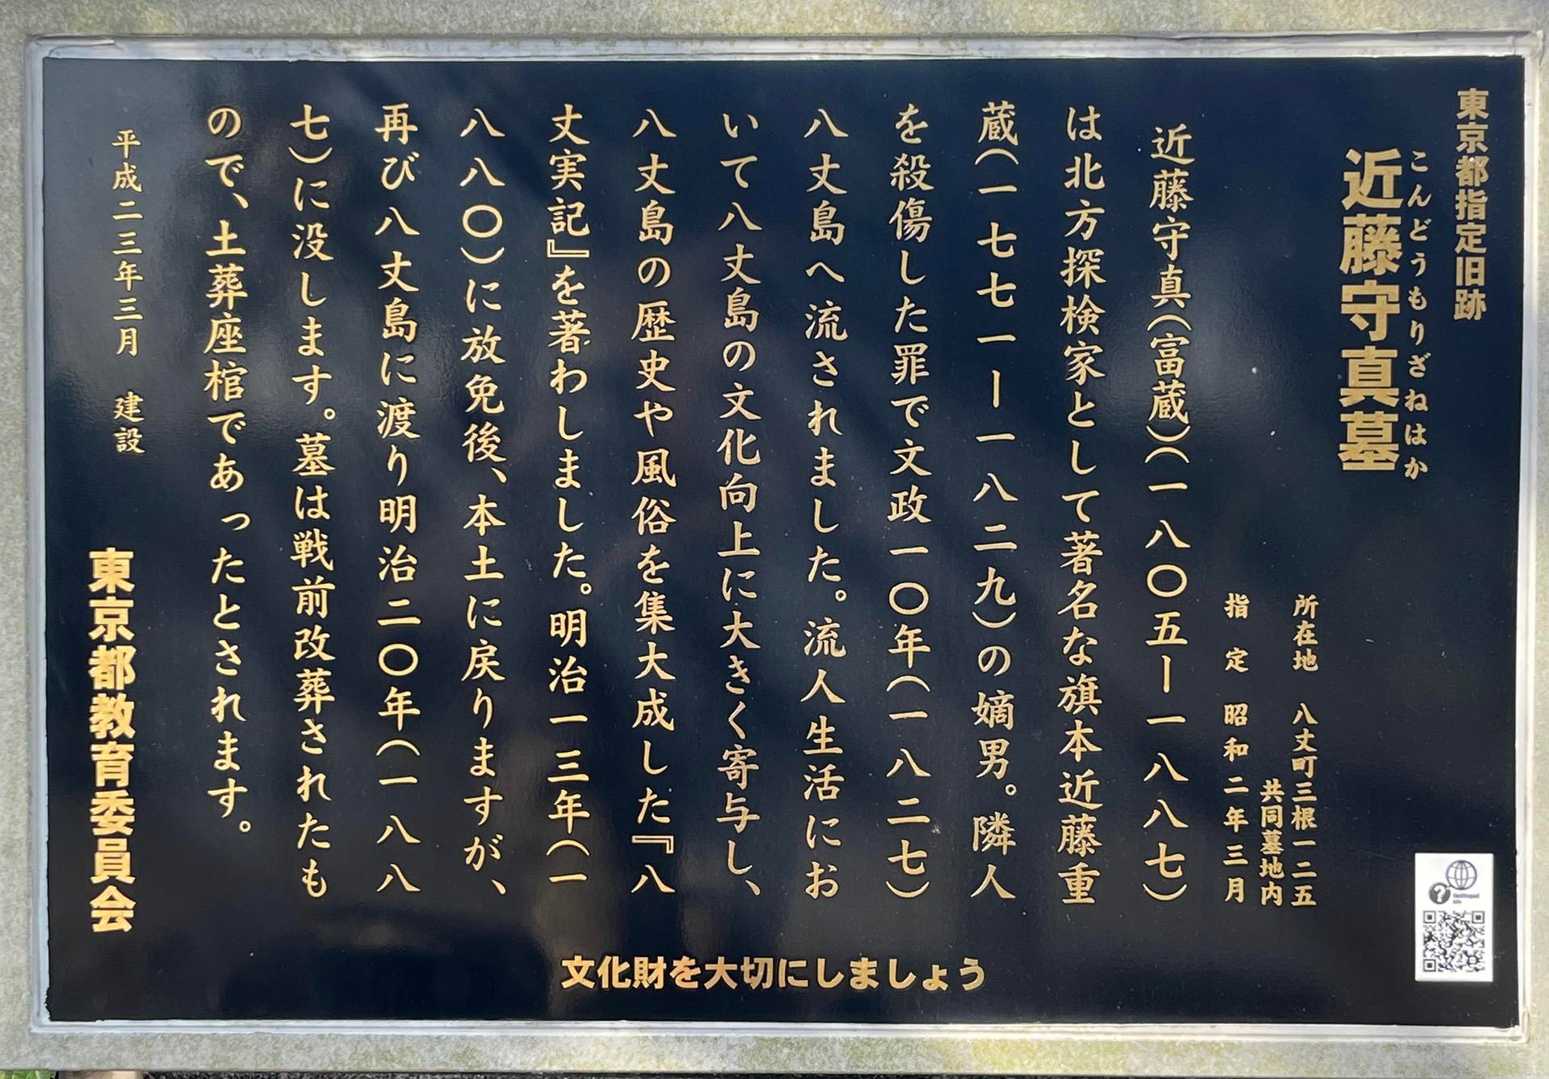 東京都指定旧跡
こんどうもりざねはか
近藤守真墓
所在地 八丈町三根一二五
共同墓地内
指定 昭和二年三月
近藤守真(富蔵)(一八〇五ー一八八七)
は北方探検家として著名な旗本近藤重
蔵(一七七一ー一八二九)の嫡男。隣人
を殺傷した罪で文政一〇年(一八二七)
八丈島へ流されました。流人生活にお
いて八丈島の文化向上に大きく寄与し、
八丈島の歴史や風俗を集大成した『八
丈実記』を著わしました。明治一三年(一
八八〇)に放免後、本土に戻りますが、
再び八丈島に渡り明治二〇年(一八八
七)に没します。墓は戦前改葬されたも
ので、土葬座棺であったとされます。
平成二三年三月 建設
東京都教育委員会
文化財を大切にしましょう